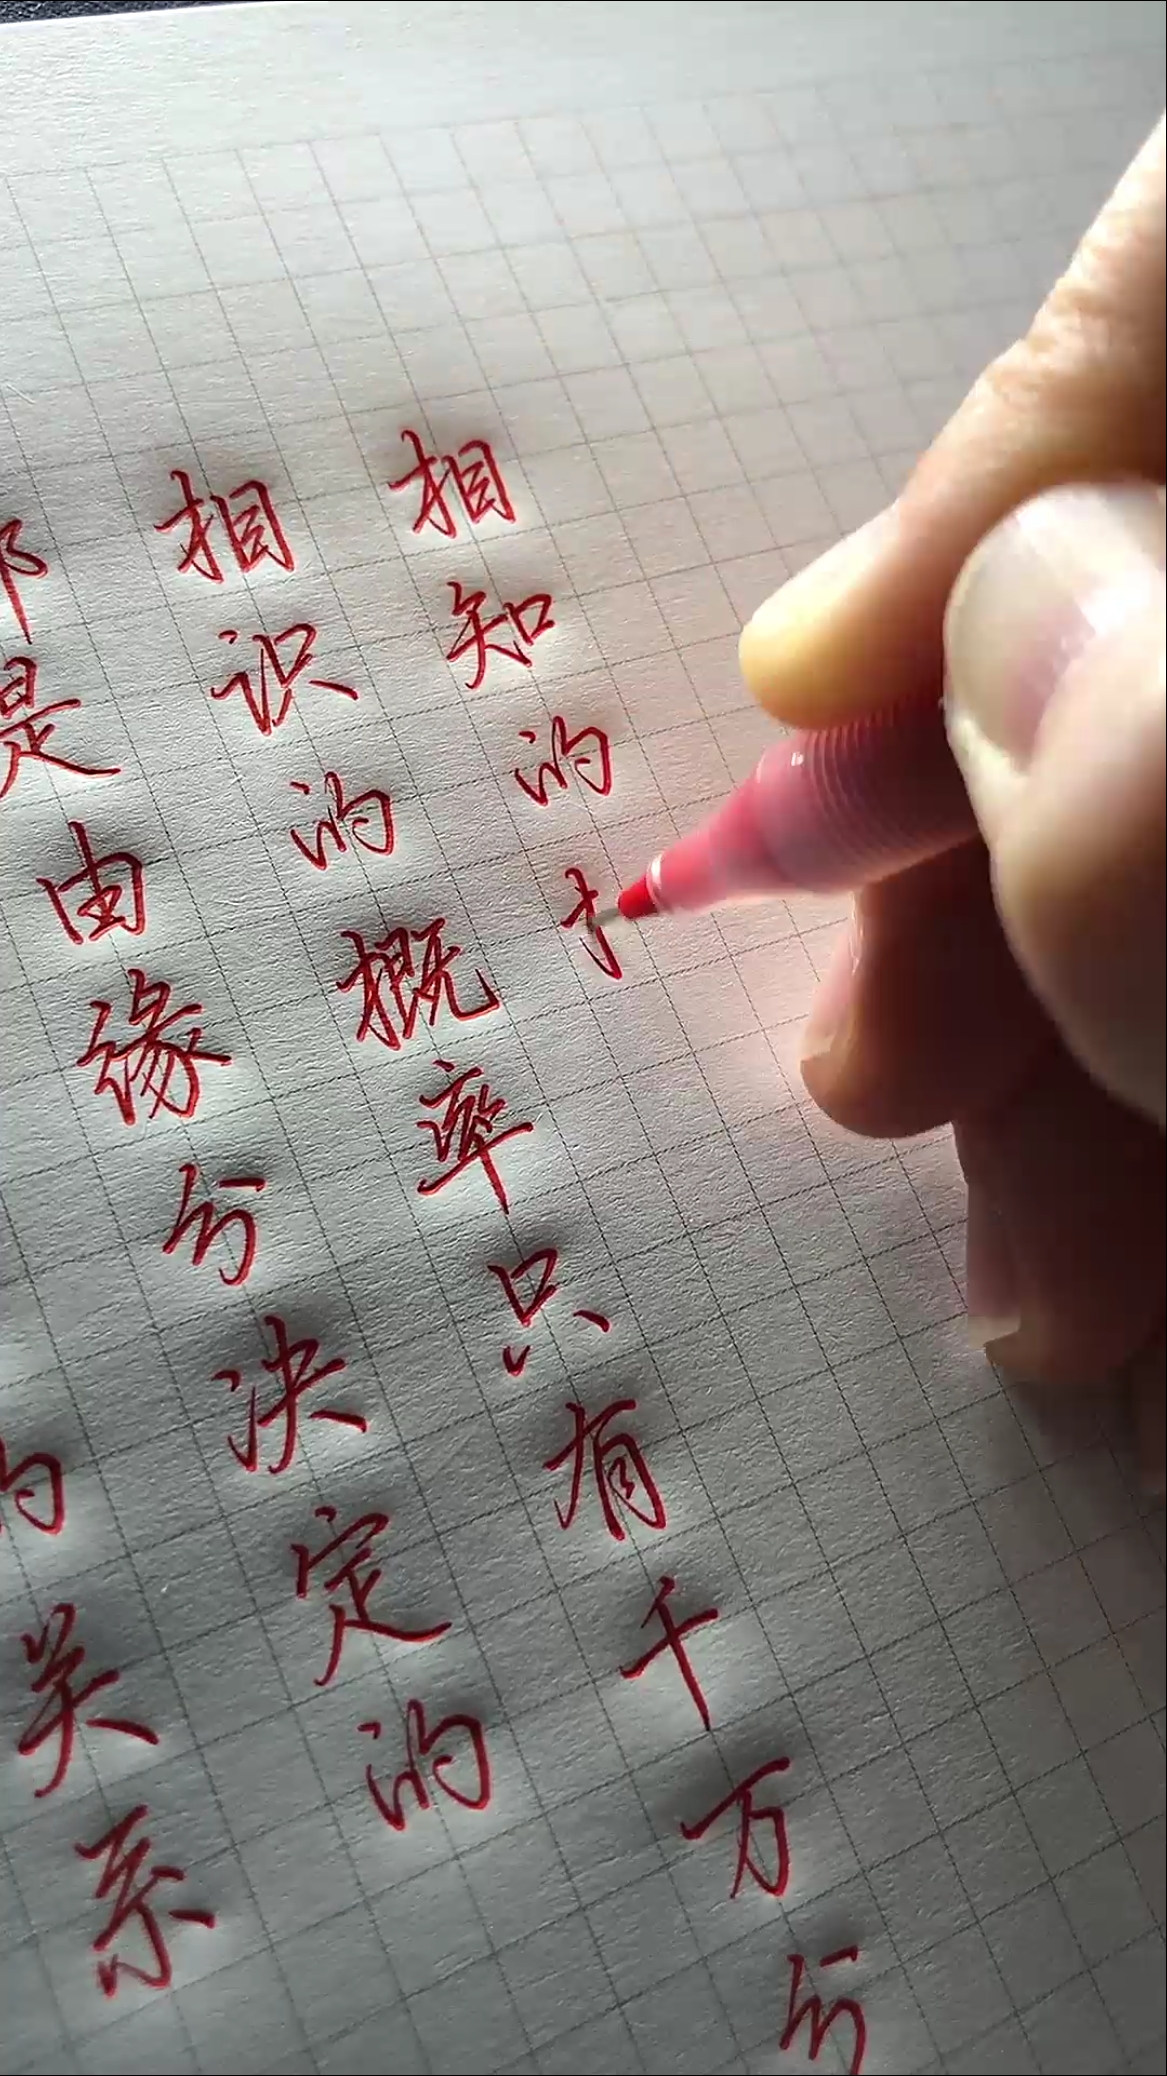 的关系
是由缘分决定的
相识的概率只有千万分
相知的